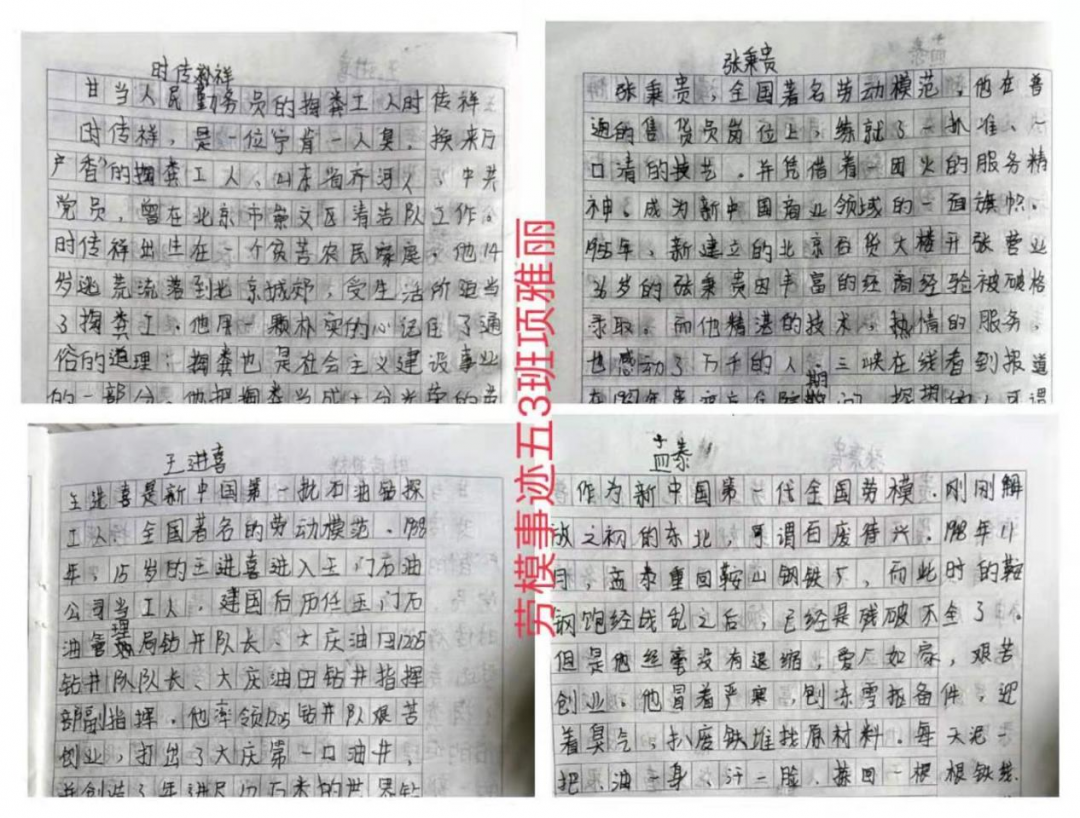 时传祥
甘当人民勤务员的掏粪工人时传祥
时传祥,是一位宁肯一人臭,换来万
户香"的掏粪工人、山东省齐河人,中共
党员,曾在北京市崇文区清洁队工作。
时传祥出生在一个贫苦农民家庭,他14
岁逃荒流落到北京城郊,受生活所迫当
了掏粪工,他用一颗朴实的心记住了通
俗的道理:掏粪也是社会主义建设事业
的一部分,他把掏粪当成十分光荣的劳
张秉贵
张秉贵,全国著名劳动模范,他在普
通的售货员岗位上,练就了一抓准、一
口清的技艺,并凭借着一团火的服务精
神,成为新中国商业领域的一面旗帜。
1955年,新建立的北京百货大楼开张营业
36岁的张秉贵因丰富的经商经验被破格
录取,而他精湛的技术,热情的服务,
也感动了万千的人,三峡在线看到报道
在1987年张秉贵住院期间,探望的人可谓
劳模事迹五3班项雅丽
王进喜
王进喜是新中国第一批石油钻探
工人,全国著名的劳动模范。1938
年,15岁的王进喜进入玉门石油
公司当工人,建国后历任玉门石
油管理局钻井队长、大庆油田1205
钻井队队长、大庆油田钻井指挥
部副指挥。他率领1205钻井队艰苦
创业,打出了大庆第一口油井,
并创造了年进尺10万米的世界钻
孟泰
作为新中国第一代全国劳模,刚刚解
放之初的东北,可谓百废待兴。1948年11
月,孟泰重回鞍山钢铁厂,而此时的鞍
钢饱经战乱之后,已经是残破不全了。
但是他丝毫没有退缩,爱厂如家,艰苦
创业。他冒着严寒,刨冻雪抠备件,迎
着臭气,扒废铁堆找原材料。每天泥一
把,油一身,汗一脸,捡回一根根铁线